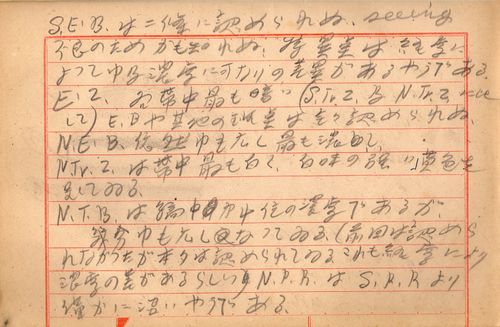 S.E.B. は二條に認められぬ. seeing
不良のためかも知れぬ. 特異点は経度に
よって巾及濃度に可なりの差異があるやうである.
E.Z. 各帯中最も暗い (S.Tr.Z. 及 N.Tr.Z. に比
して) E.B や其他の現象は全く認められぬ.
N.E.B. 依然巾も広し 最も濃し,
N.Tr.Z. は帯中最も白く, 白味の強い黄色を
呈してゐる.
N.T.B. は縞中 中位の濃度であるが,
巾も広し なってゐる. (前回は認めら
れなかったが本夕は認められてゐる これも経度により
濃度の差があるらしい) N.P.R. は S.P.R より
僅かに淡いやうである.